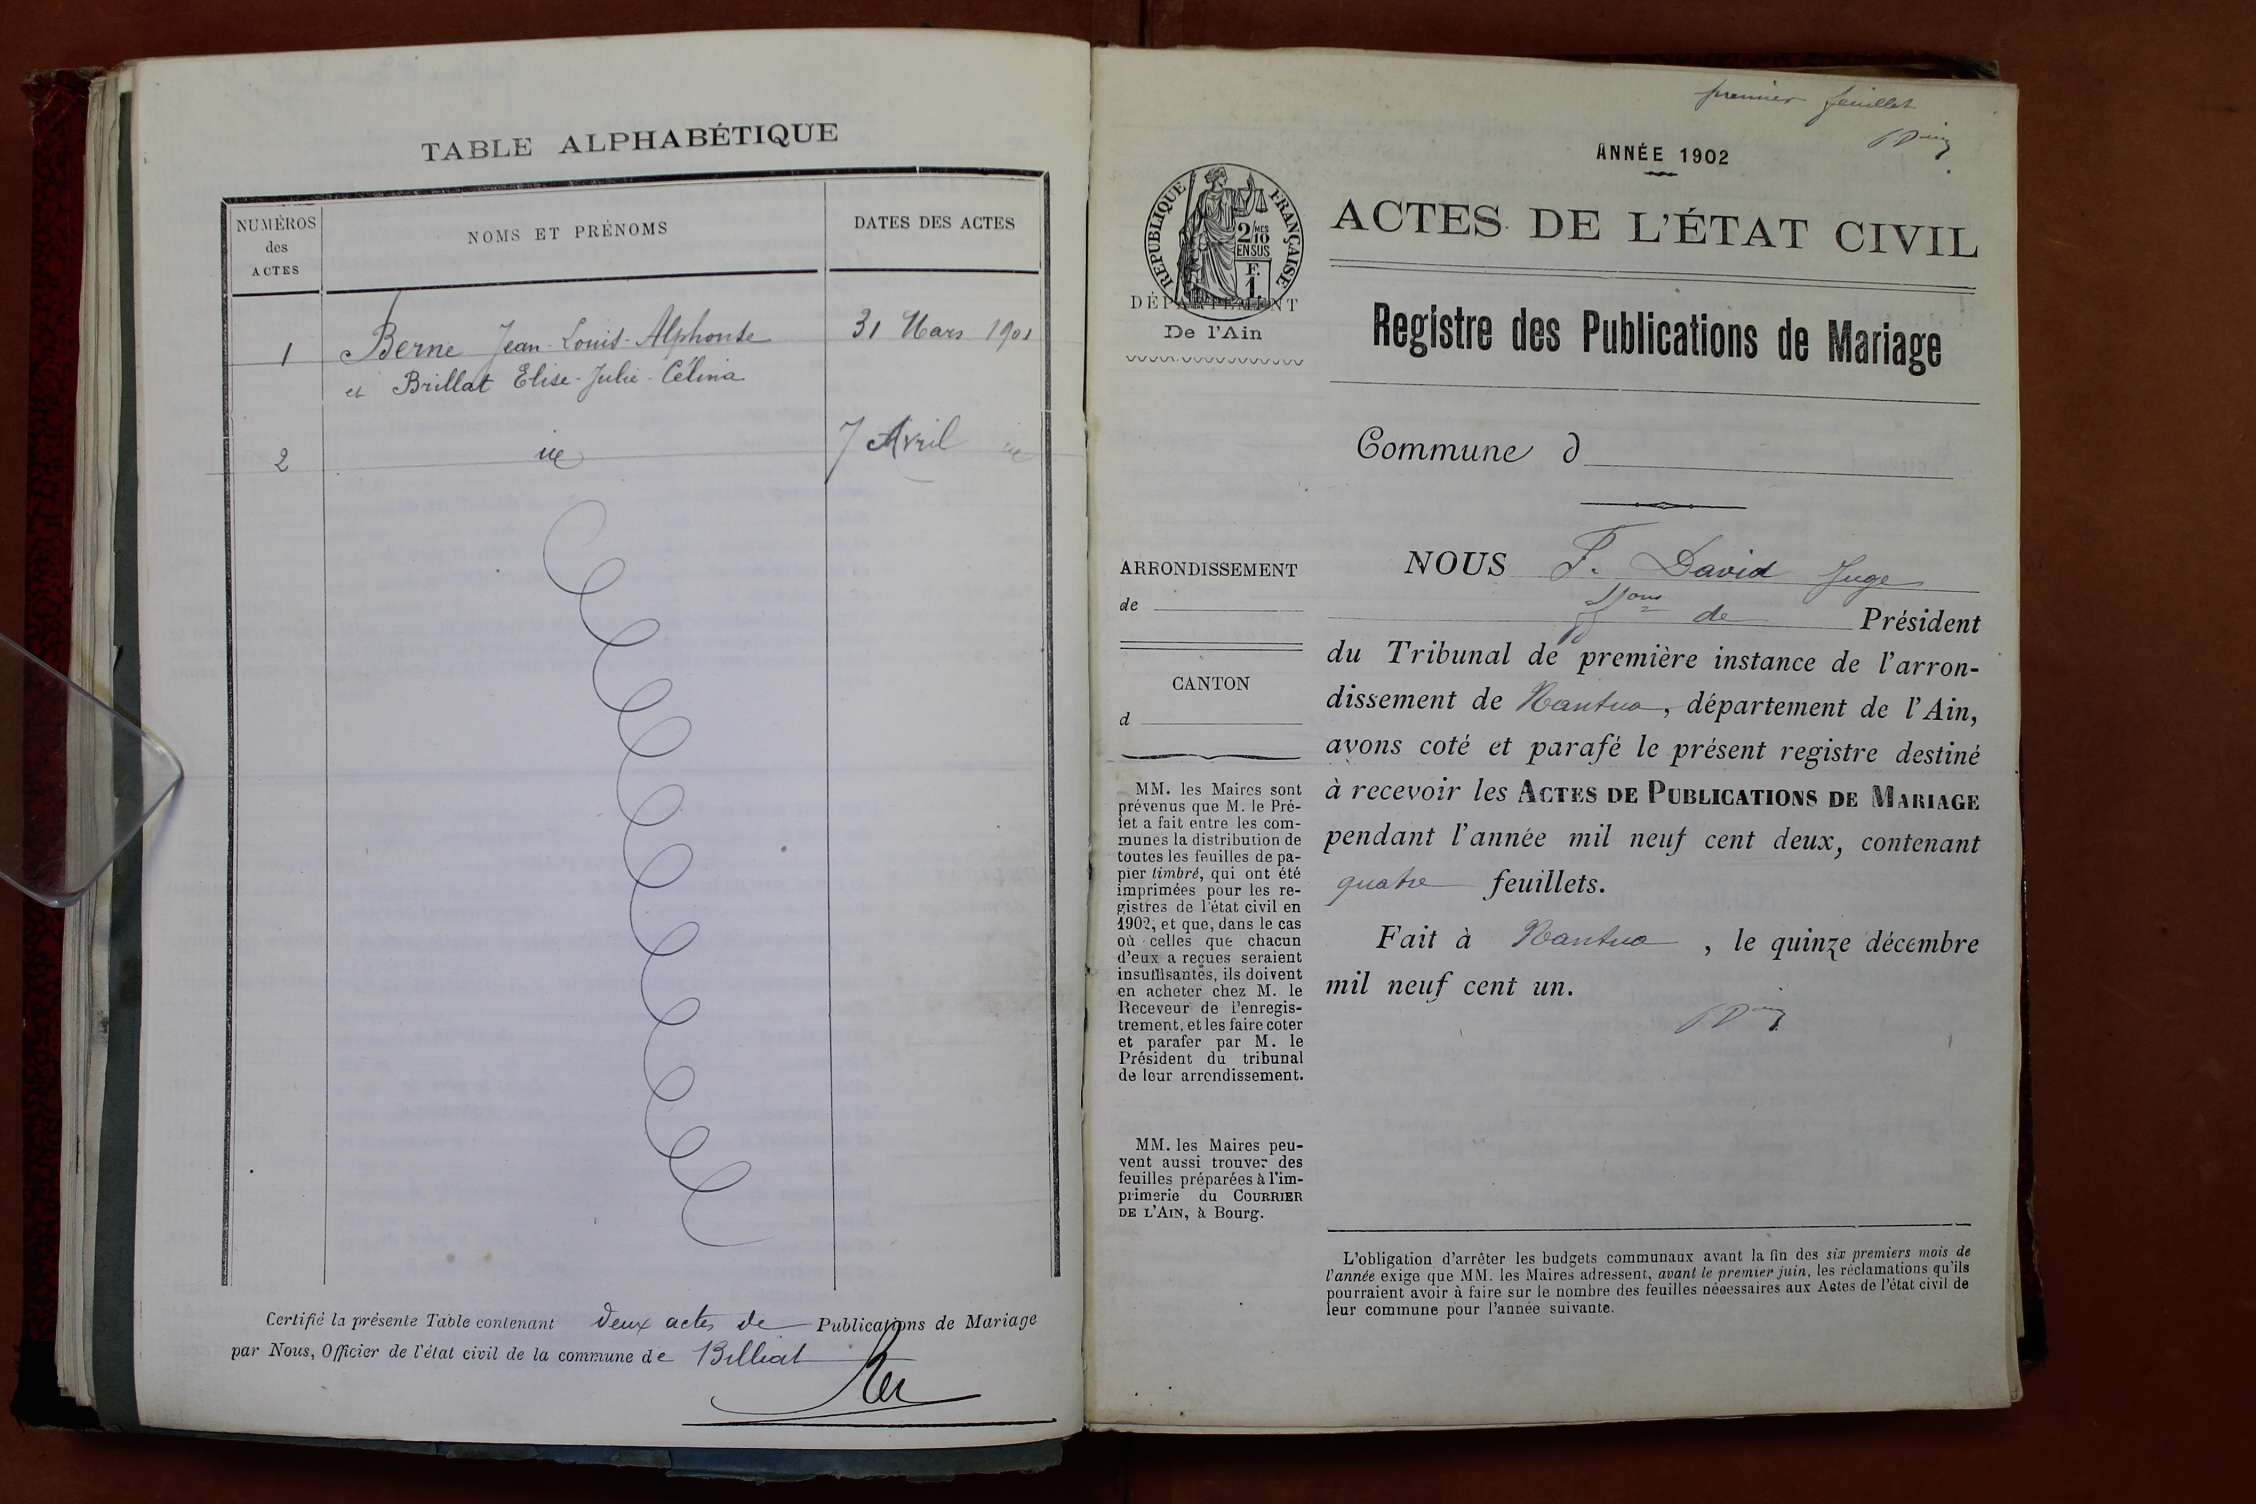 TABLE ALPHABÉTIQUE
NUMÉROS
des
ACTES
NOMS ET PRÉNOMS
DATES DES ACTES
1
Berne Jean-Louis-Alphonse
31 Mars 1901
et Brillat Elise-Julie-Célina
2
7 Avril
Certifié la présente Table contenant deux actes de Publications de Mariage
par Nous, Officier de l'état civil de la commune de Billiat
premier feuillet
ANNÉE 1902
ACTES DE L'ÉTAT CIVIL
RÉPUBLIQUE FRANÇAISE
2/10 MES
EN SUS
F.
1
DÉPARTEMENT
De l'Ain
Registre des Publications de Mariage
Commune d
ARRONDISSEMENT
de
CANTON
d
MM. les Maires sont
prévenus que M. le Pré-
fet a fait entre les com-
munes la distribution de
toutes les feuilles de pa-
pier timbré, qui ont été
imprimées pour les re-
gistres de l'état civil en
1902, et que, dans le cas
où celles que chacun
d'eux a reçues seraient
insuffisantes, ils doivent
en acheter chez M. le
Receveur de l'enregis-
trement, et les faire coter
et parafer par M. le
Président du tribunal
de leur arrondissement.
MM. les Maires peu-
vent aussi trouver des
feuilles préparées à l'im-
primerie du COURRIER
DE L'AIN, à Bourg.
NOUS F. David Juge
ffons de Président
du Tribunal de première instance de l'arron-
dissement de Nantua, département de l'Ain,
avons coté et parafé le présent registre destiné
à recevoir les ACTES DE PUBLICATIONS DE MARIAGE
pendant l'année mil neuf cent deux, contenant
quatre feuillets.
Fait à Nantua, le quinze décembre
mil neuf cent un.
L'obligation d'arrêter les budgets communaux avant la fin des six premiers mois de
l'année exige que MM. les Maires adressent, avant le premier juin, les réclamations qu'ils
pourraient avoir à faire sur le nombre des feuilles nécessaires aux Actes de l'état civil de
leur commune pour l'année suivante.